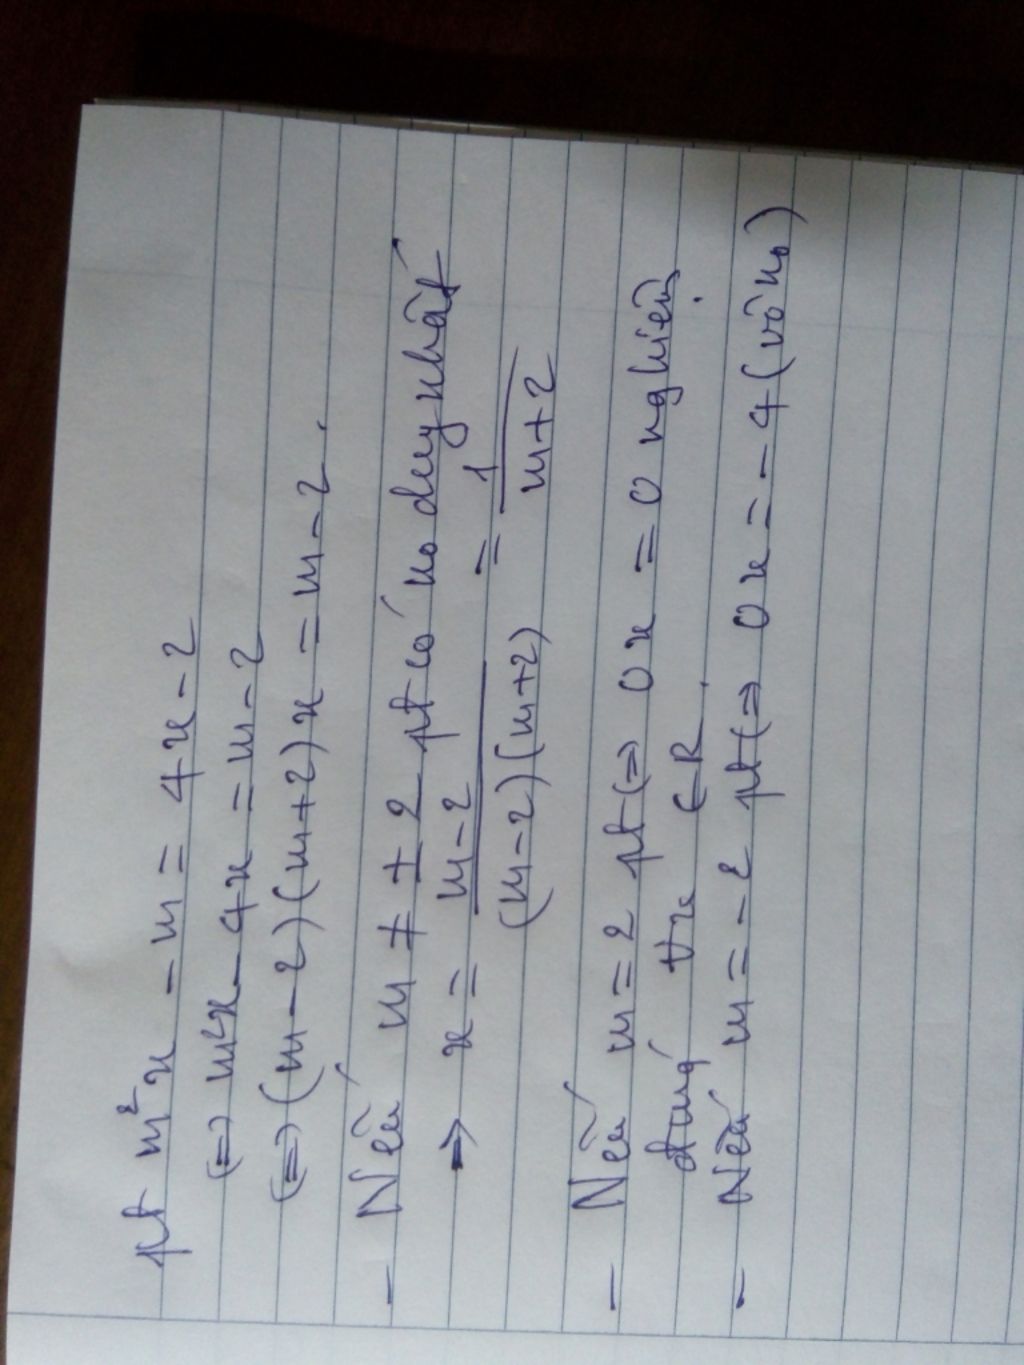 pt m²x - m = 4x - 2
(=) m²x - 4x = m - 2
(=) (m - 2)(m + 2)x = m - 2.
- Nếu m ≠ ± 2 pt có no duy nhất
→ x = m - 2 / (m - 2)(m + 2) = 1 / m + 2
- Nếu m = 2 pt (=) 0x = 0 nghiệm
đúng ∀x ∈ R.
- Nếu m = - 2 pt (=) 0x = - 4 (vô no)